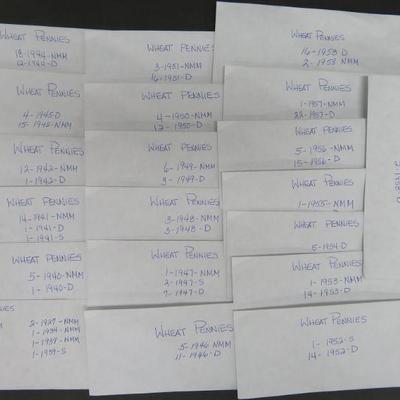 Wheat Pennies
18-1944-NMM
12-1944-D
Wheat Pennies
4-1945D
15-1945-NMM
Wheat Pennies
12-1942-NMM
1-1942-D
Wheat Pennies
14-1941-NMM
1-1941-D
1-1941-S
Wheat Pennies
5-1940-NMM
1-1940-D
Pennies
2-1927-NMM
1-1934-NMM
1-1939-NMM
1-1939-S
Wheat Pennies
3-1951-NMM
16-1951-D
Wheat Pennies
4-1950-NMM
12-1950-D
Wheat Pennies
6-1949-NMM
3-1949-D
Wheat Pennies
3-1948-NMM
3-1948-D
Wheat Pennies
1-1947-NMM
2-1947-S
7-1947-D
Wheat Pennies
5-1946 NMM
11-1946-D
Wheat Pennies
16-1958-D
2-1958 NMM
Wheat Pennies
1-1957-NMM
22-1957-D
Wheat Pennies
5-1956-NMM
15-1956-D
Wheat Pennies
1-1955-NMM
Wheat Pennies
5-1954-D
Wheat Pennies
1-1953-NMM
14-1953-D
Wheat Pennies
1-1952-S
14-1952-D